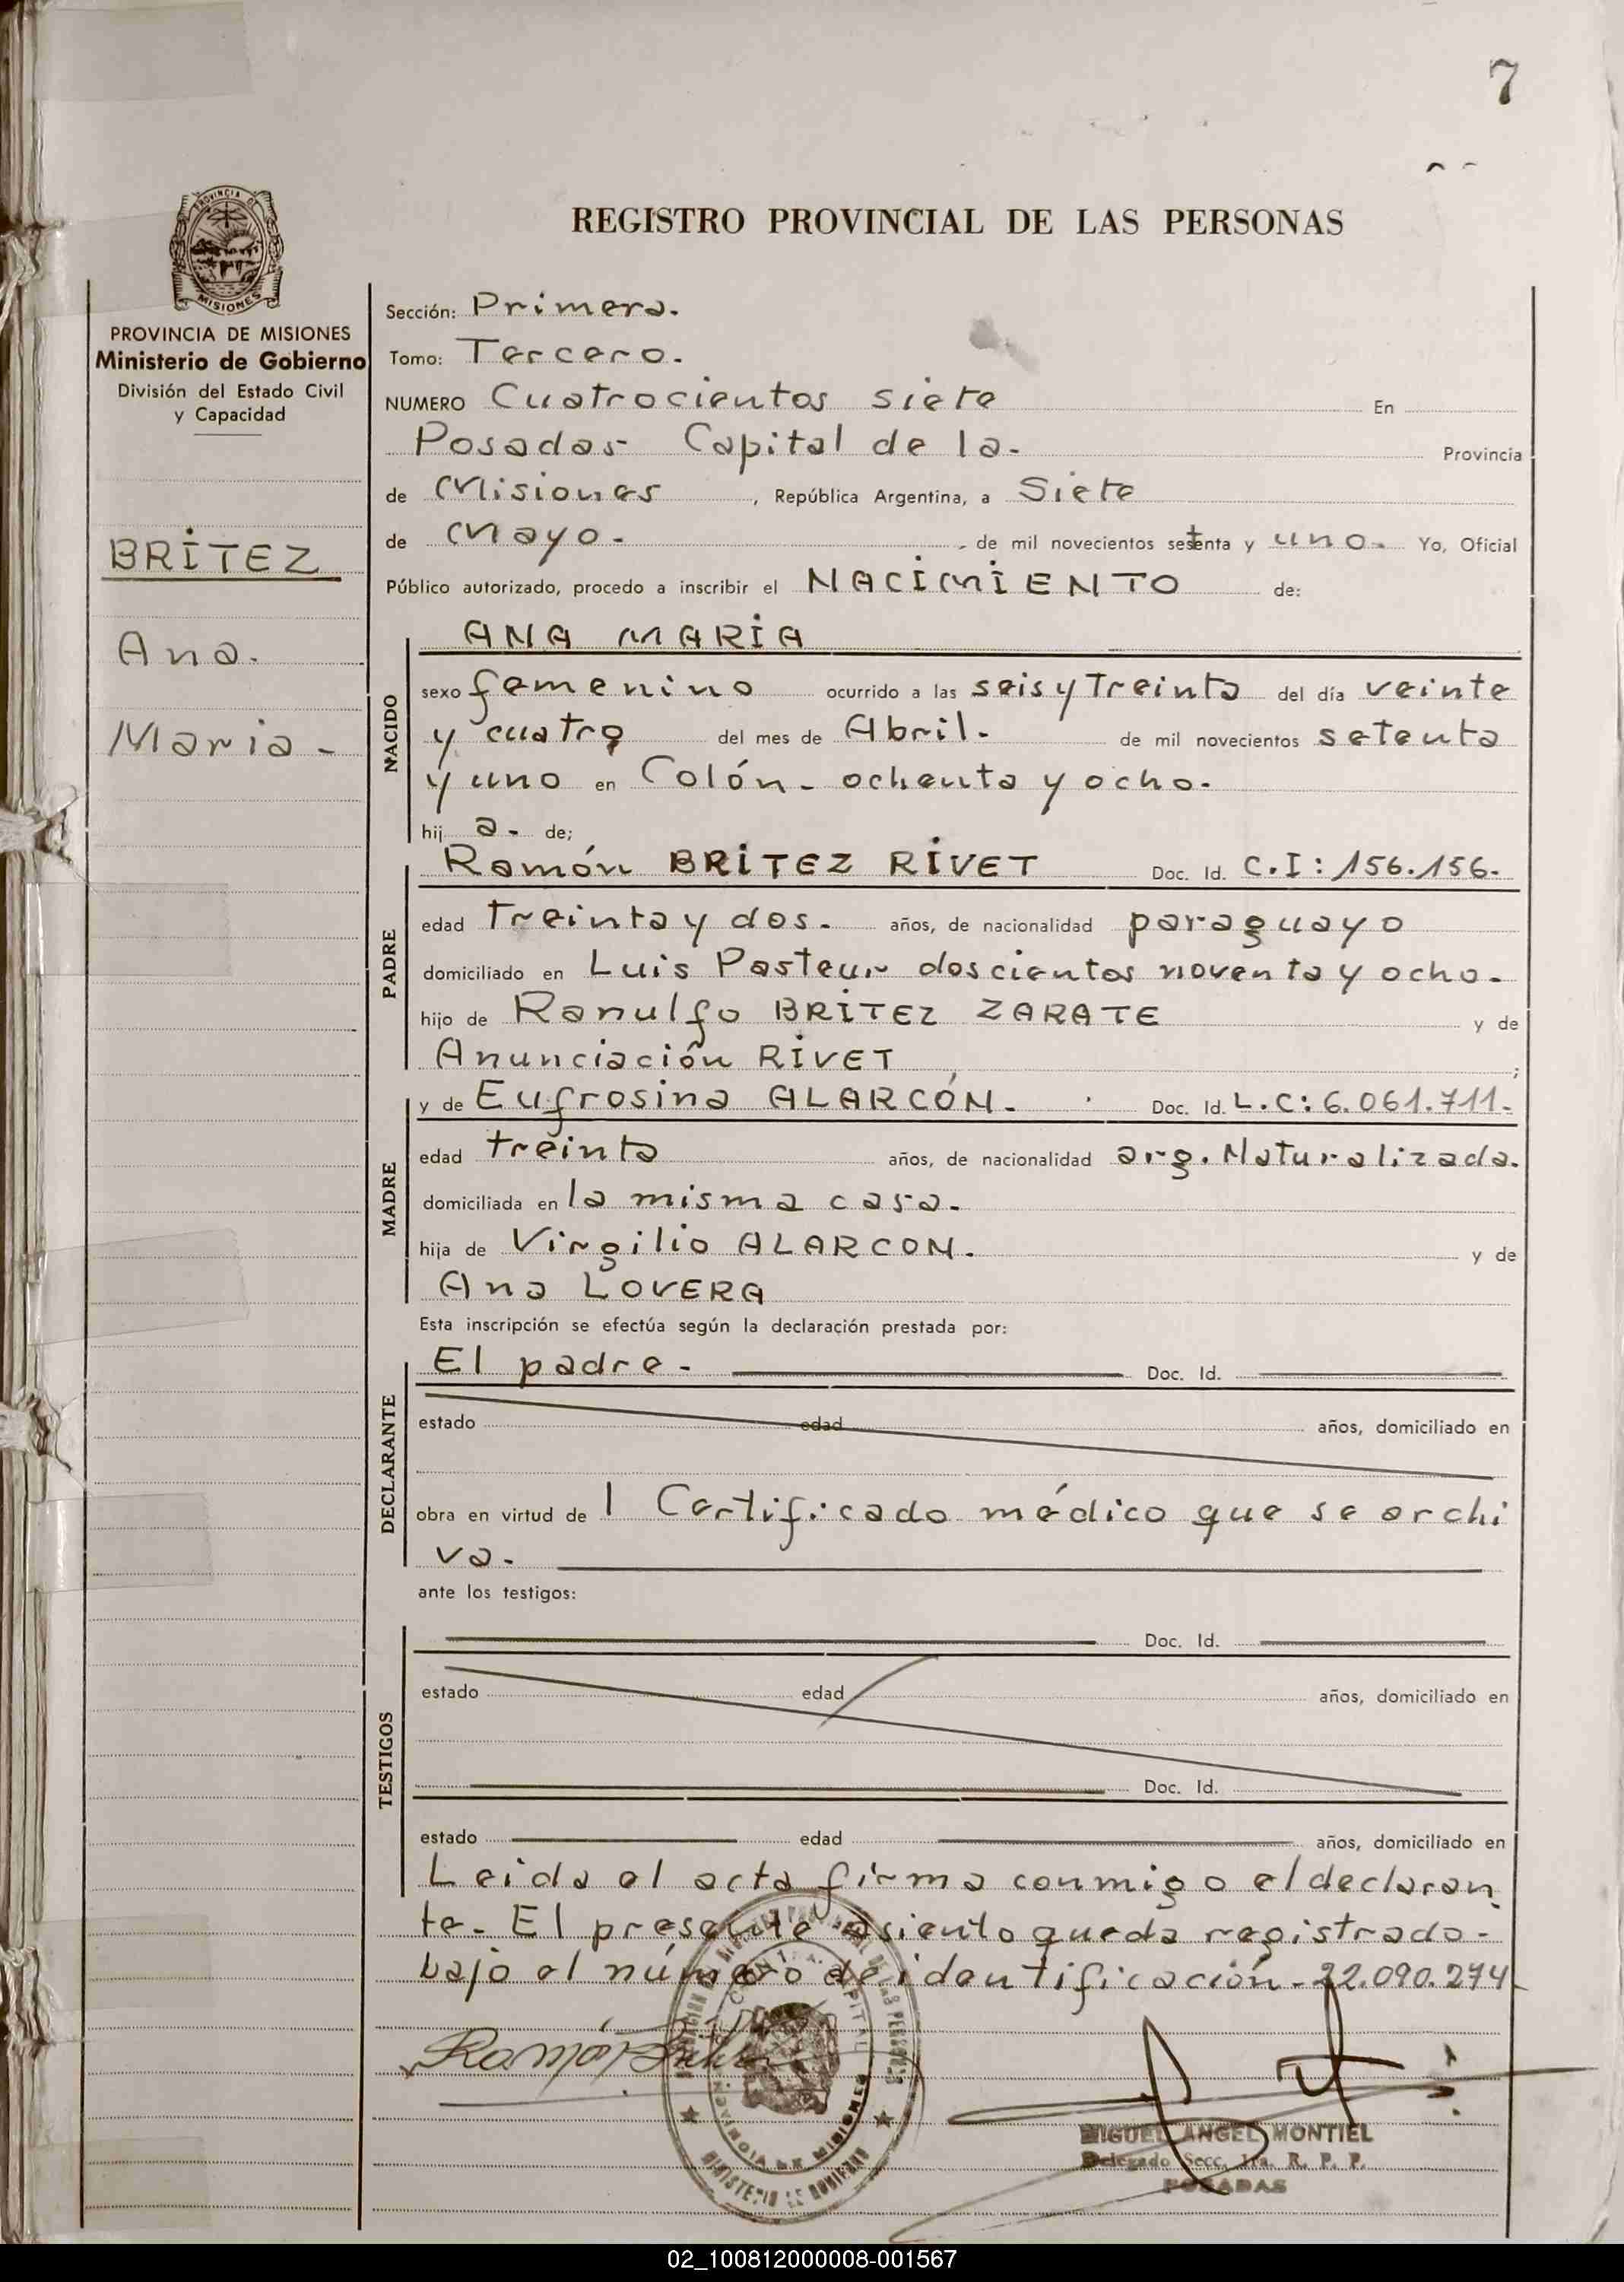 7
PROVINCIA DE
MISIONES
REGISTRO PROVINCIAL DE LAS PERSONAS
PROVINCIA DE MISIONES
Ministerio de Gobierno
División del Estado Civil
y Capacidad
BRITEZ
Ana.
Maria -
Sección: Primera.
Tomo: Tercero.
NUMERO Cuatrocientos siete En
Posadas Capital de la- Provincia
de Misiones , República Argentina, a Siete
de Mayo. - de mil novecientos setenta y uno. Yo, Oficial
Público autorizado, procedo a inscribir el NACIMIENTO de:
NACIDO
ANA MARIA
sexo femenino ocurrido a las seis y Treinta del día veinte
y cuatro del mes de Abril. de mil novecientos setenta
y uno en Colón - ochenta y ocho.
hij a. de;
PADRE
Ramón BRITEZ RIVET Doc. Id. C.I: 156.156-
edad Treinta y dos. años, de nacionalidad paraguayo
domiciliado en Luis Pasteur doscientos noventa y ocho.
hijo de Ranulfo BRITEZ ZARATE y de
Anunciación RIVET ;
MADRE
y de Eufrosina ALARCÓN. Doc. Id. L.C: 6.061.711-
edad treinta años, de nacionalidad arg. Naturalizada.
domiciliada en la misma casa.
hija de Virgilio ALARCON. y de
Ana LOVERA
Esta inscripción se efectúa según la declaración prestada por:
DECLARANTE
El padre - Doc. Id.
estado edad años, domiciliado en
obra en virtud de 1 Certificado médico que se archi
va.
ante los testigos:
TESTIGOS
Doc. Id.
estado edad años, domiciliado en
Doc. Id.
estado edad años, domiciliado en
Leida el acta firma conmigo el declaran
te. El presente asiento queda registrado-
bajo el número de identificación - 22.090.274
Ramón
MIGUEL ANGEL MONTIEL
Delegado Secc. 1ra. R. P. P.
POSADAS
MINISTERIO DE GOBIERNO
02_100812000008-001567